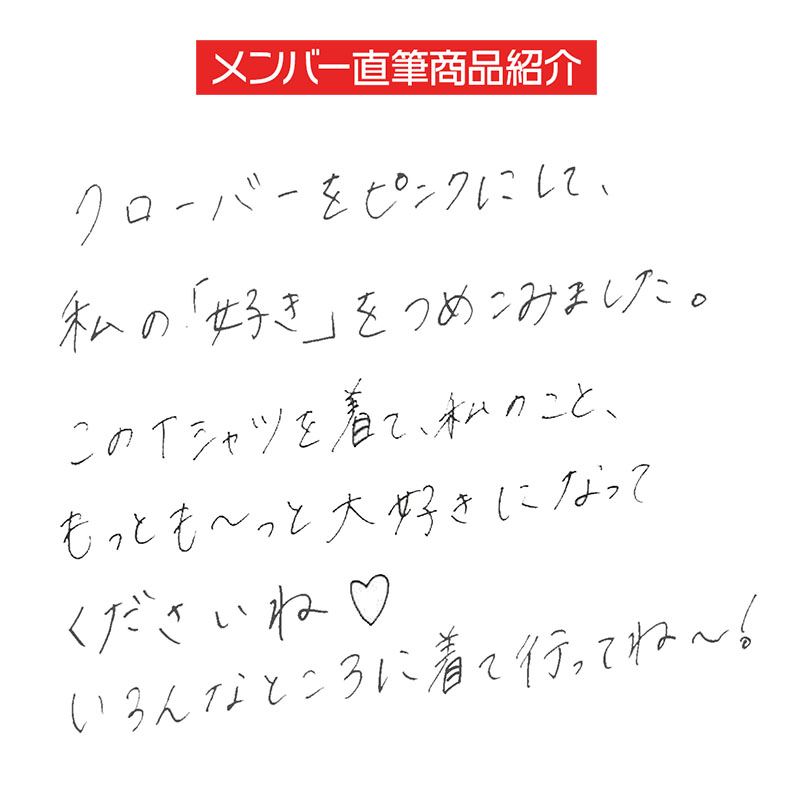 メンバー直筆商品紹介
クローバーをピンクにして、
私の「好き」をつめこみました。
このTシャツを着て、私のこと、
もっとも〜っと大好きになって
くださいね♡
いろんなところに着て行ってね〜!